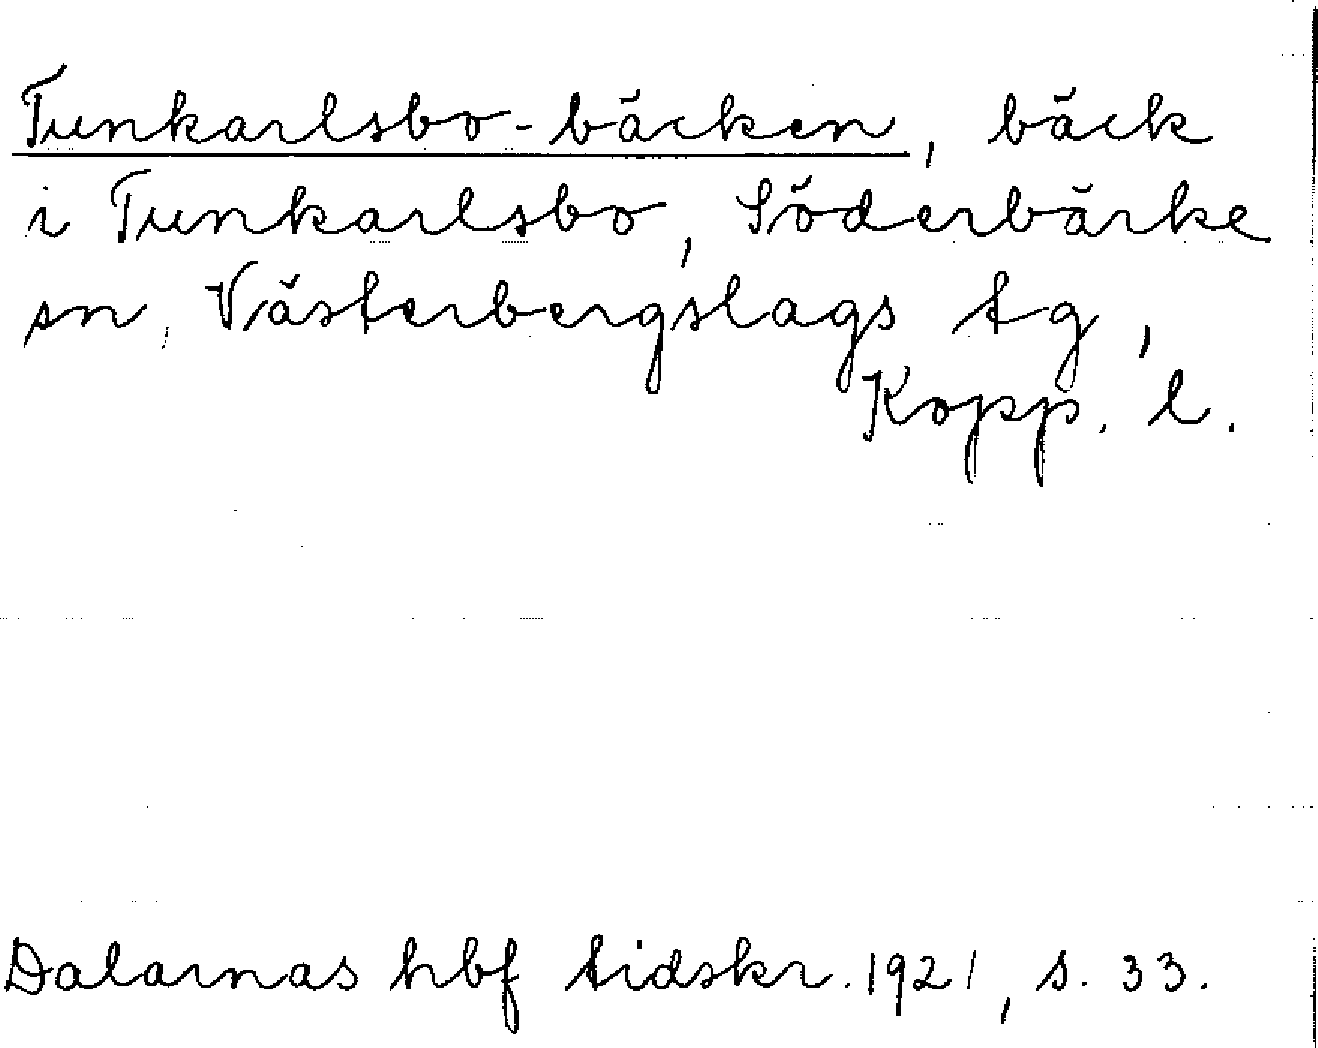 Tunkarlsbo-bäcken, bäck
i Tunkarlsbo, Söderbärke
sn, Västerbergslags tg,
Kopp. l.
Dalarnas hbf tidskr. 1921, s. 33.